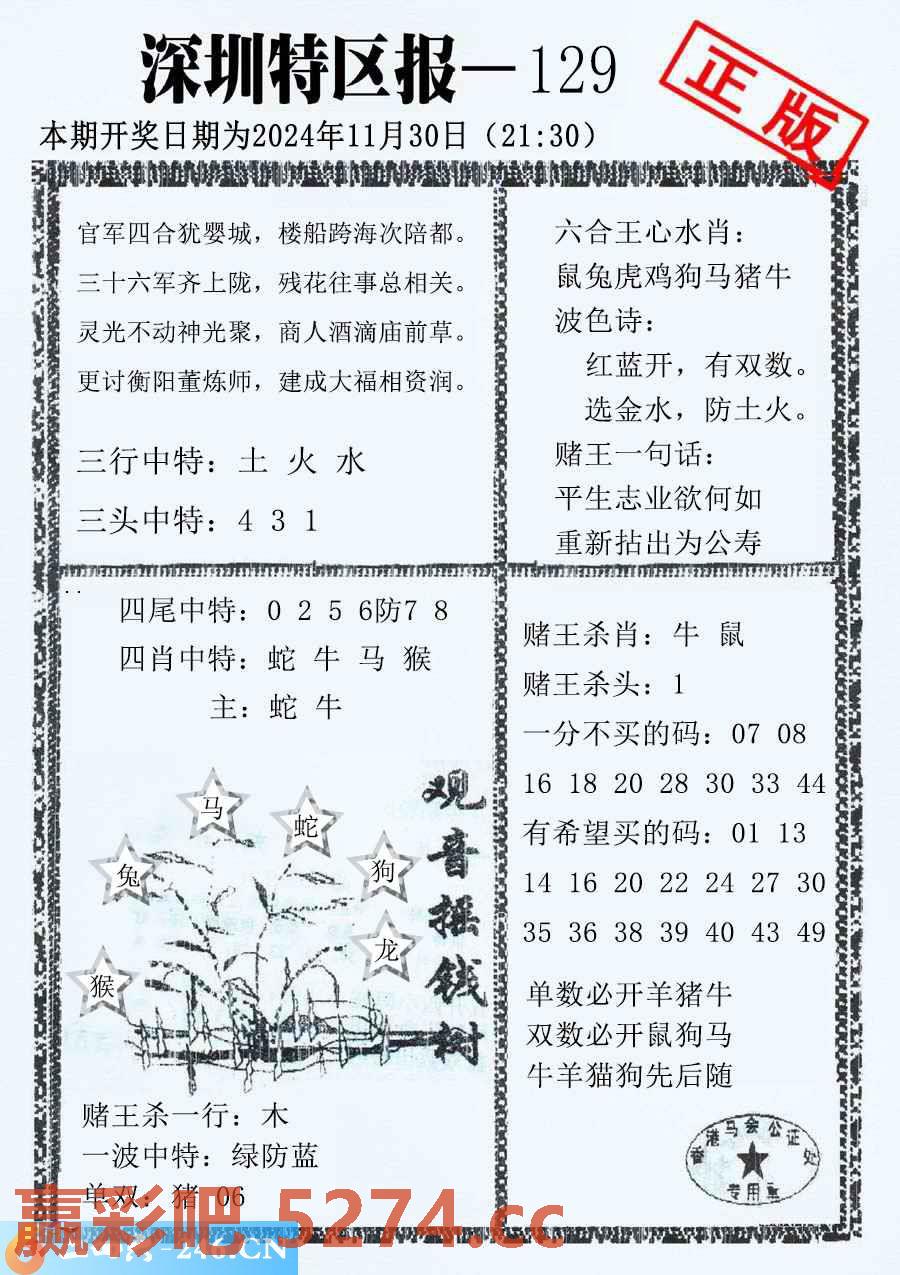 深圳特区报—129
正版
本期开奖日期为2024年11月30日（21:30）
官军四合犹婴城，楼船跨海次陪都。
三十六军齐上陇，残花往事总相关。
灵光不动神光聚，商人酒滴庙前草。
更讨衡阳董炼师，建成大福相资润。
三行中特：土 火 水
三头中特：4 3 1
六合王心水肖：
鼠兔虎鸡狗马猪牛
波色诗：
红蓝开，有双数。
选金水，防土火。
赌王一句话：
平生志业欲何如
重新拈出为公寿
四尾中特：0 2 5 6防7 8
四肖中特：蛇 牛 马 猴
主：蛇 牛
马
蛇
兔
狗
龙
猴
观音摇钱树
赌王杀一行：木
一波中特：绿防蓝
单双：猪 06
赌王杀肖：牛 鼠
赌王杀头：1
一分不买的码：07 08
16 18 20 28 30 33 44
有希望买的码：01 13
14 16 20 22 24 27 30
35 36 38 39 40 43 49
单数必开羊猪牛
双数必开鼠狗马
牛羊猫狗先后随
香港马会公证处
专用章
赢彩吧 5274.cc
-246.CN